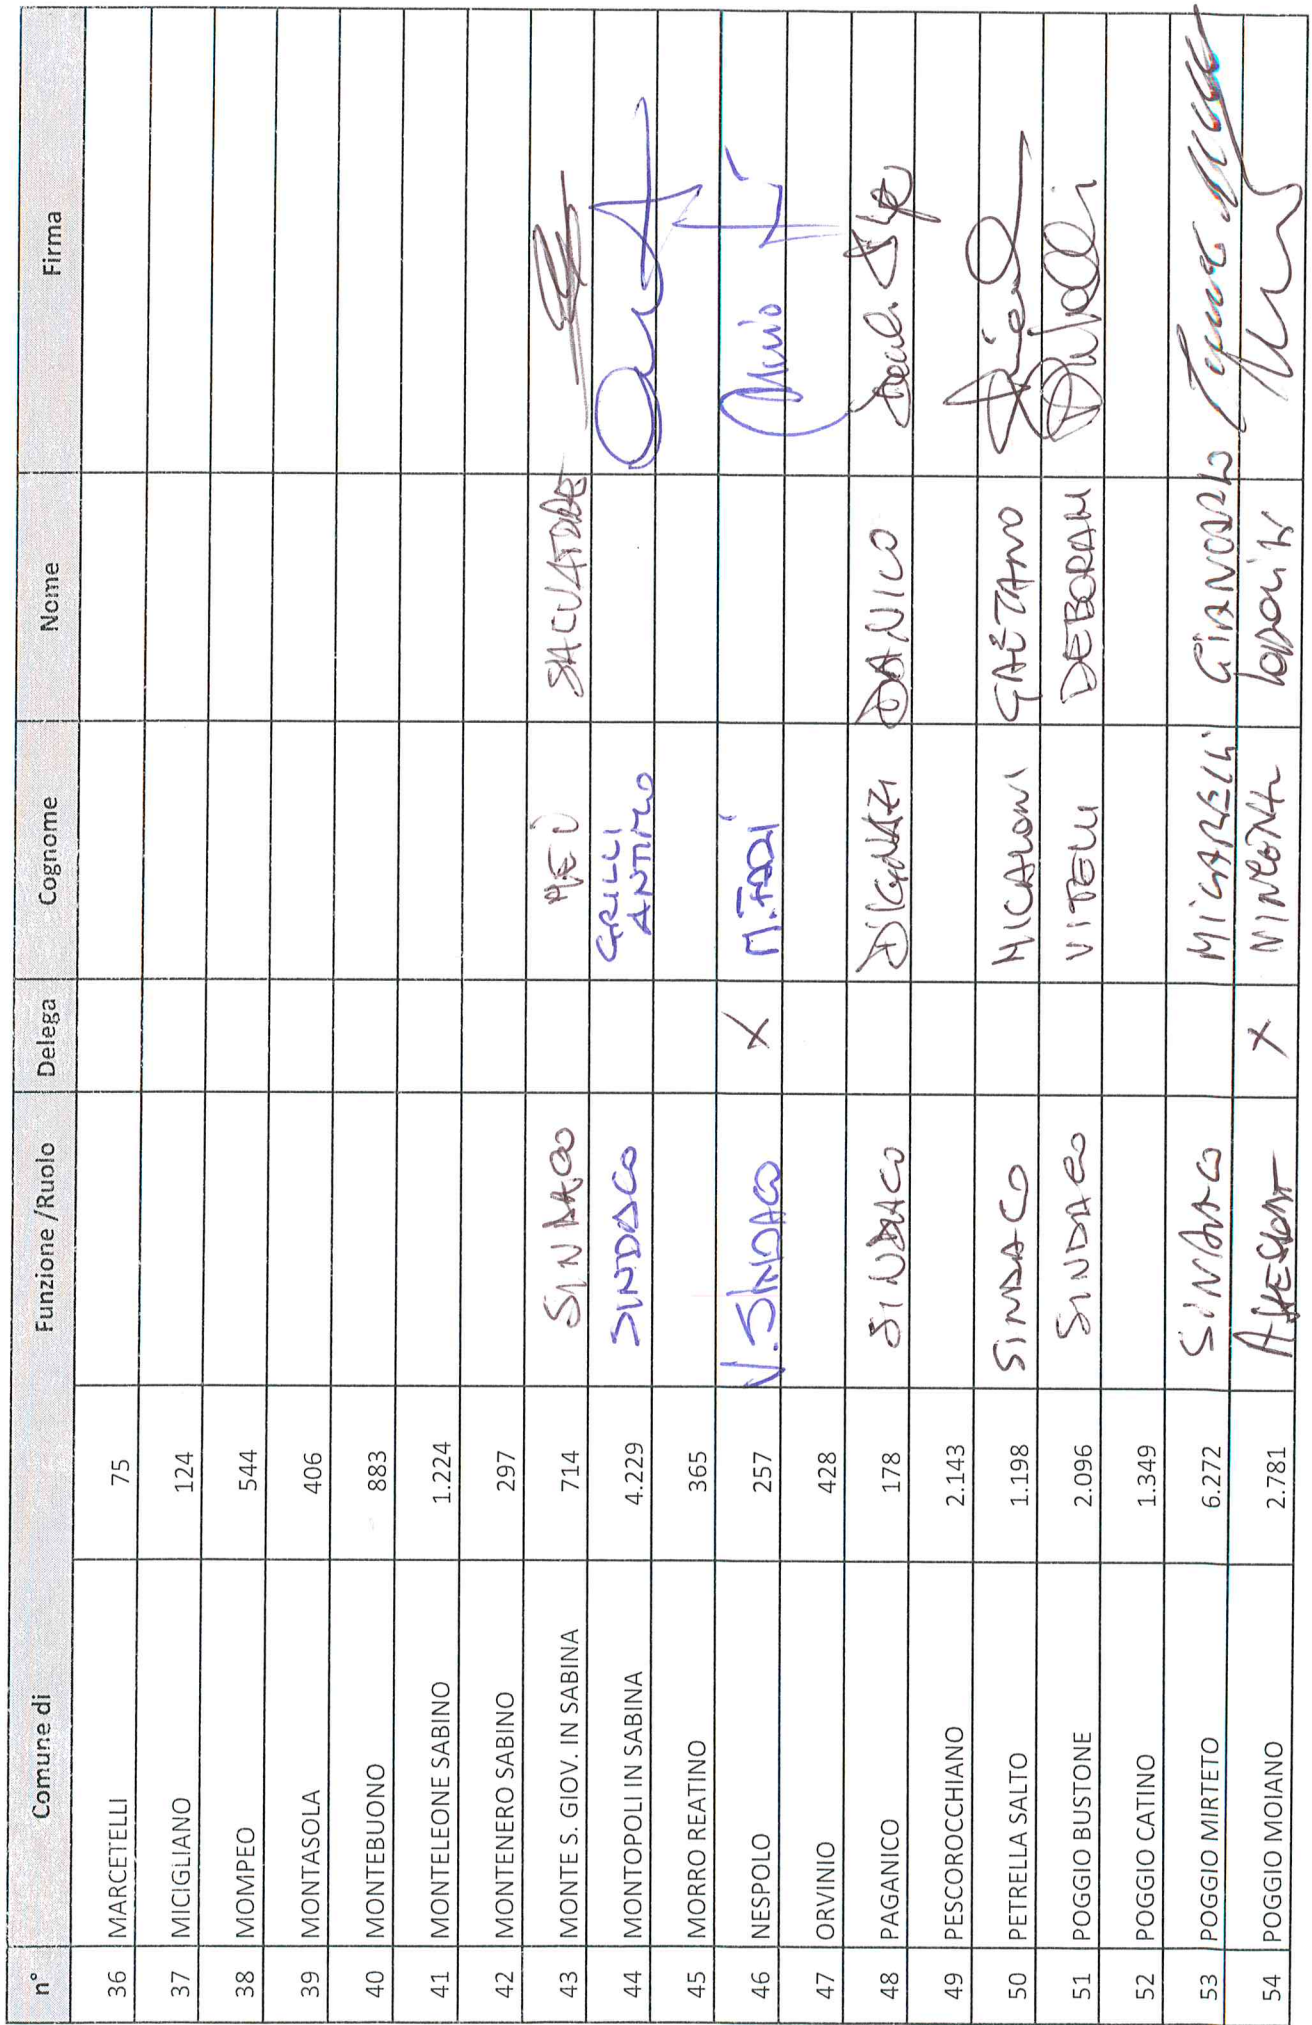 n° Comune di Funzione /Ruolo Delega Cognome Nome Firma
36 MARCETELLI 75
37 MICIGLIANO 124
38 MOMPEO 544
39 MONTASOLA 406
40 MONTEBUONO 883
41 MONTELEONE SABINO 1.224
42 MONTENERO SABINO 297
43 MONTE S. GIOV. IN SABINA 714 SINDACO MEI SALVATORE
44 MONTOPOLI IN SABINA 4.229 SINDACO GRILLI ANTIMO
45 MORRO REATINO 365
46 NESPOLO 257 V. SINDACO X
47 ORVINIO 428
48 PAGANICO 178 SINDACO D'IGNAZI DANICO
49 PESCOROCCHIANO 2.143
50 PETRELLA SALTO 1.198 SINDACO MICALONI GAETANO
51 POGGIO BUSTONE 2.096 SINDACO VITELLI DEBORAH
52 POGGIO CATINO 1.349
53 POGGIO MIRTETO 6.272 SINDACO MICARELLI GIANCARLO
54 POGGIO MOIANO 2.781 X